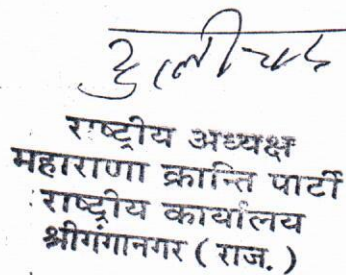 दुलीचन्द
राष्ट्रीय अध्यक्ष
महाराणा क्रान्ति पार्टी
राष्ट्रीय कार्यालय
श्रीगंगानगर ( राज. )